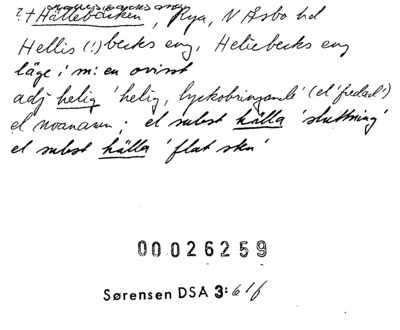 ? + Hällebäcken, Rya, N Åsbo hd
Hellis (!) becks eng, Heliebecks eng
läge i m: en ovisst
adj helig 'helig, lyckobringande' (el 'fredad')
el noanamn; el subst hälla 'sluttning'
el subst hälla 'flat sten'
00026259
Sørensen DSA 3:61f